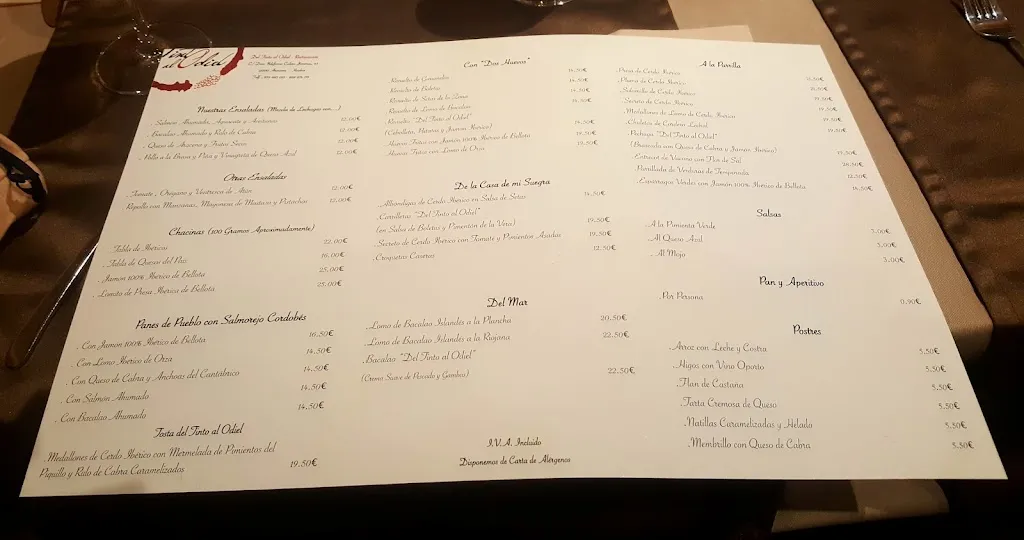 Tinto
al Odiel
Del Tinto al Odiel - Restaurante
Nuestras Ensaladas (Mezcla de Lechugas con....)
. Salmón Ahumado, Aguacate y Arándanos 12.00€
. Bacalao Ahumado y Rulo de Cabra 12.00€
. Queso de Aracena y Frutos Secos 12.00€
. Pollo a la Brasa y Pera y Vinagreta de Queso Azul 12.00€
Otras Ensaladas
. Tomate, Orégano y Ventresca de Atún 12.00€
Repollo con Manzanas, Mayonesa de Mostaza y Pistachos 12.00€
Chacinas (100 Gramos Aproximadamente)
. Tabla de Ibéricos 22.00€
. Tabla de Quesos del País 16.00€
. Jamón 100% Ibérico de Bellota 25.00€
. Lomito de Presa Ibérica de Bellota 25.00€
Panes de Pueblo con Salmorejo Cordobés
. Con Jamón 100% Ibérico de Bellota 16.50€
. Con Lomo Ibérico de Orza 14.50€
. Con Queso de Cabra y Anchoas del Cantábrico 14.50€
. Con Salmón Ahumado 14.50€
. Con Bacalao Ahumado 14.50€
Tosta del Tinto al Odiel
. Medallones de Cerdo Ibérico con Mermelada de Pimientos del
Piquillo y Rulo de Cabra Caramelizados 19.50€
Con "Dos Huevos"
. Revuelto de Gurumelos
. Revuelto de Boletus
. Revuelto de Setas de la Zona
. Revuelto de Lomo de Bacalao
. Revuelto "Del Tinto al Odiel"
(Cebolleta, Patatas y Jamón Ibérico)
. Huevos Fritos con Jamón 100% Ibérico de Bellota
. Huevos Fritos con Lomo de Orza 19.50€
De la Casa de mi Suegra
. Albóndigas de Cerdo Ibérico en Salsa de Setas 14.50€
. Carrilleras "Del Tinto al Odiel"
(en Salsa de Boletus y Pimentón de la Vera) 19.50€
. Secreto de Cerdo Ibérico con Tomate y Pimientos Asados 19.50€
. Croquetas Caseras 12.50€
Del Mar
. Lomo de Bacalao Islandés a la Plancha 20.50€
. Lomo de Bacalao Islandés a la Riojana 22.50€
. Bacalao "Del Tinto al Odiel"
(Crema Suave de Pescado y Gambas) 22.50€
I.V.A. Incluido
Disponemos de Carta de Alérgenos
A la Parrilla
. Presa de Cerdo Ibérico
. Pluma de Cerdo Ibérico
. Solomillo de Cerdo Ibérico
. Secreto de Cerdo Ibérico
. Medallones de Lomo de Cerdo Ibérico
. Chuletas de Cordero Lechal
. Pechuga "Del Tinto al Odiel"
(Braseada con Queso de Cabra y Jamón Ibérico)
. Entrecot de Vacuno con Flor de Sal
. Parrillada de Verduras de Temporada 12.50€
. Espárragos Verdes con Jamón 100% Ibérico de Bellota 16.50€
Salsas
. A la Pimienta Verde 3.00€
. Al Queso Azul 3.00€
. Al Mojo 3.00€
Pan y Aperitivo
. Por Persona 0.90€
Postres
. Arroz con Leche y Costra 5.50€
. Higos con Vino Oporto 5.50€
. Flan de Castaña 5.50€
. Tarta Cremosa de Queso 5.50€
. Natillas Caramelizadas y Helado 5.50€
. Membrillo con Queso de Cabra 5.50€